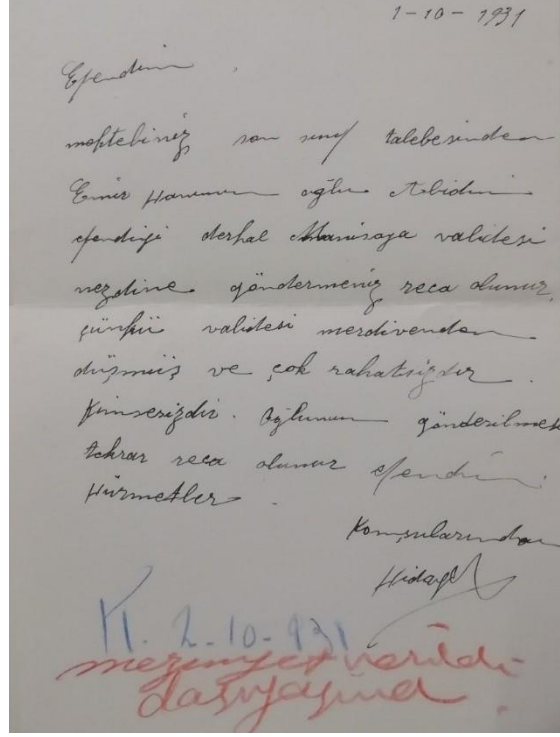 1-10-1931
Efendim
mektebiniz son sınıf talebesinden
Emir Hanımın oğlu Abidin
efendiyi derhal Manisaya validesi
nezdine göndermeniz reca olunur,
çünkü validesi merdivenden
düşmüş ve çok rahatsizdir.
Kimsesizdir. Oğlunun gönderilmek
tekrar reca olunur efendim
Hürmetler.
Komşularından
Hidayet
K. 2-10-931
mezuniyet verildi
dosyasına